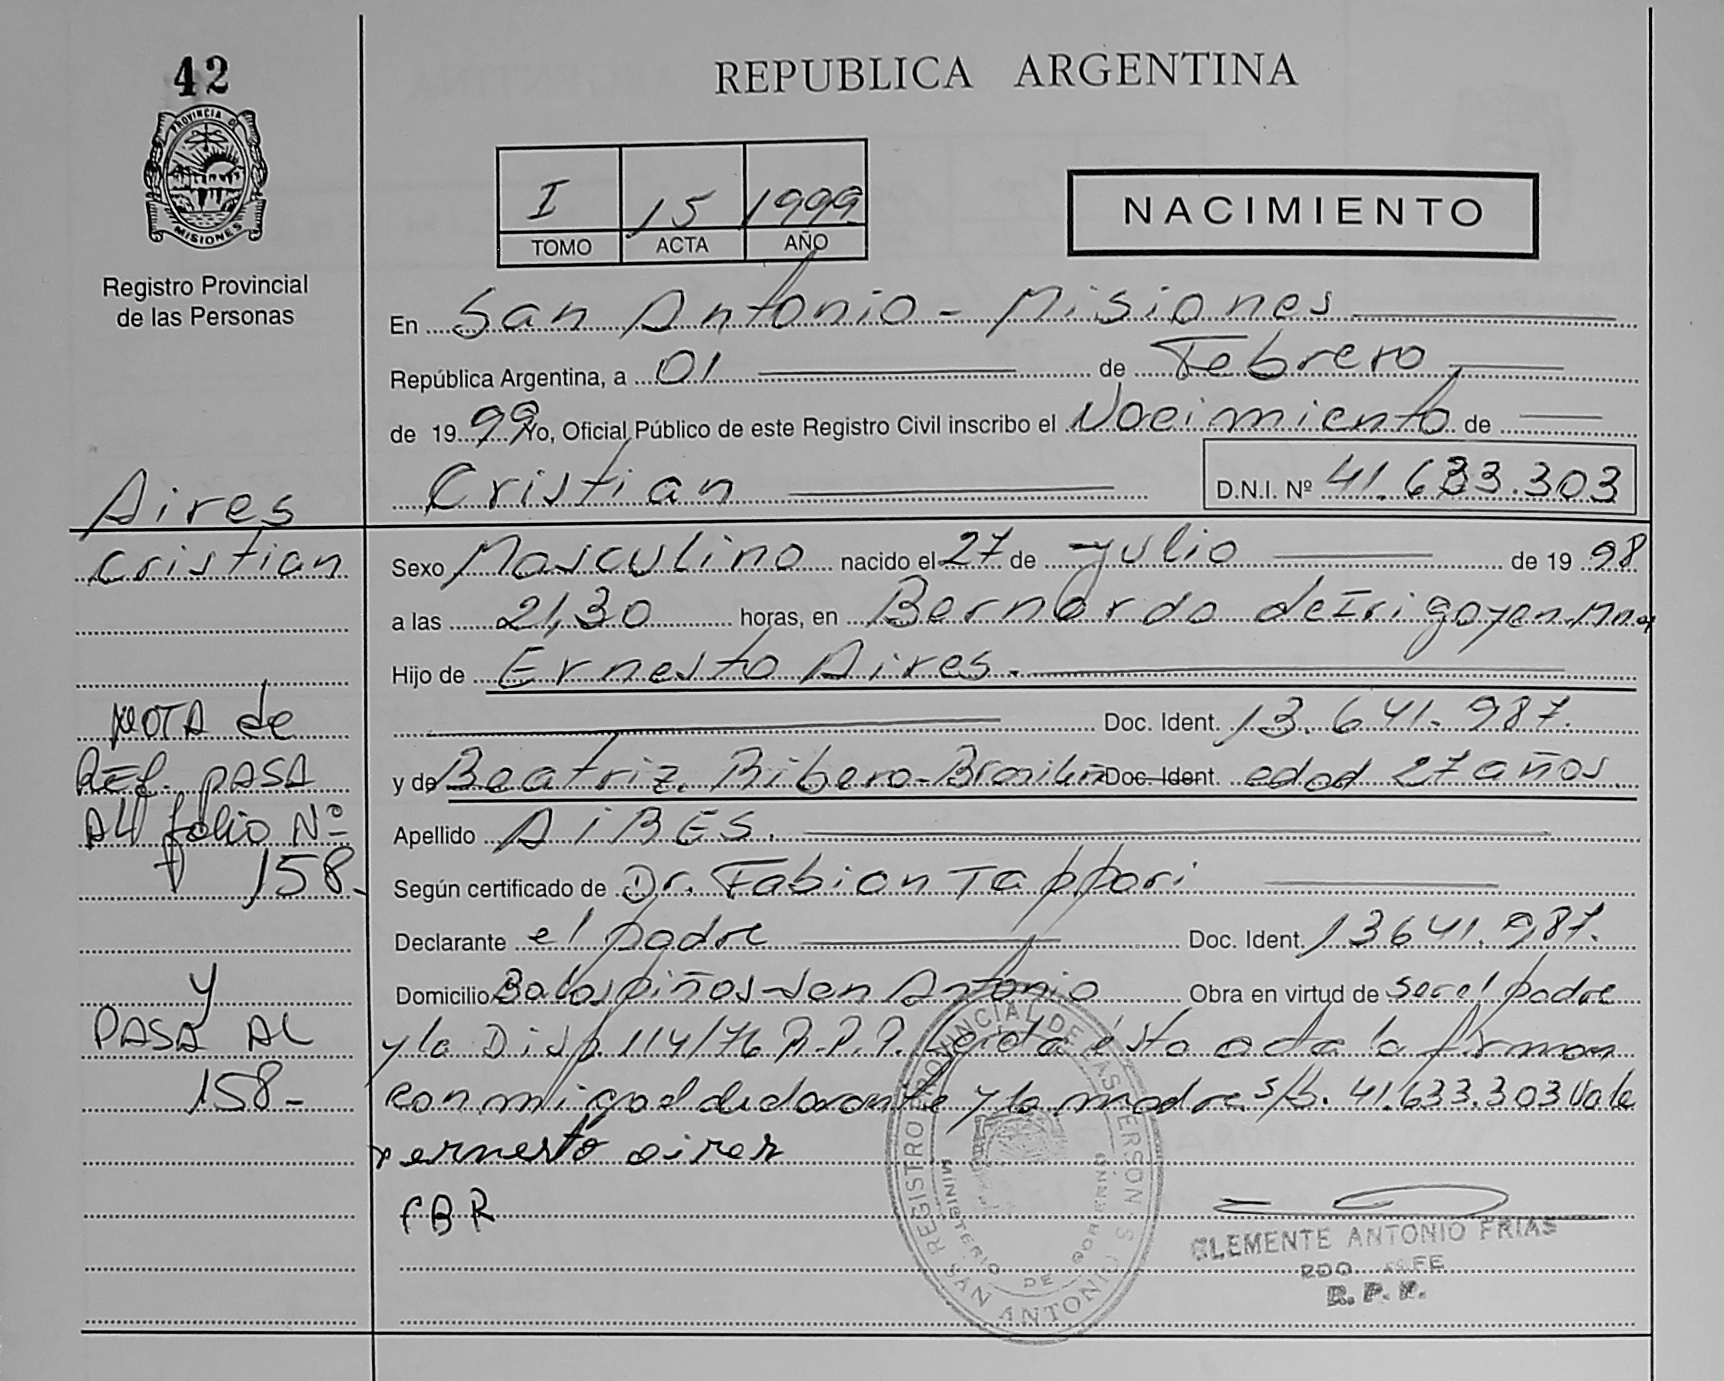 42
REPUBLICA ARGENTINA
PROVINCIA DE
MISIONES
Registro Provincial
de las Personas
I 15 1999
TOMO ACTA AÑO
NACIMIENTO
En San Antonio - Misiones
República Argentina, a 01 de Febrero
de 1999 Yo, Oficial Público de este Registro Civil inscribo el Nacimiento de
Cristian D.N.I. Nº 41.633.303
Aires
Cristian
Sexo Masculino nacido el 27 de Julio de 1998
a las 21,30 horas, en Bernardo de Irigoyen. Mnes
Hijo de Ernesto Aires.
Doc. Ident. 13.641.987.
y de Beatriz Ribero - Brasileña Doc. Ident. edad 27 años
Apellido AIRES.
Según certificado de Dr. Fabian Tappari
Declarante el padre Doc. Ident. 13641.987.
Domicilio Bo Los piños - San Antonio Obra en virtud de ser el padre
y la Disp. 114/76 R.P.P. Leida ésta acta la firman
conmigo el declarante y la madre. s/b. 41.633.303 Vale
ernesto aires
fBR
NOTA de
REF. PASA
AL folio Nº
158.
y
PASA AL
158-
REGISTRO PROVINCIAL DE LAS PERSONAS
MINISTERIO DE GOBIERNO
SAN ANTONIO
CLEMENTE ANTONIO FRIAS
R. P. P.